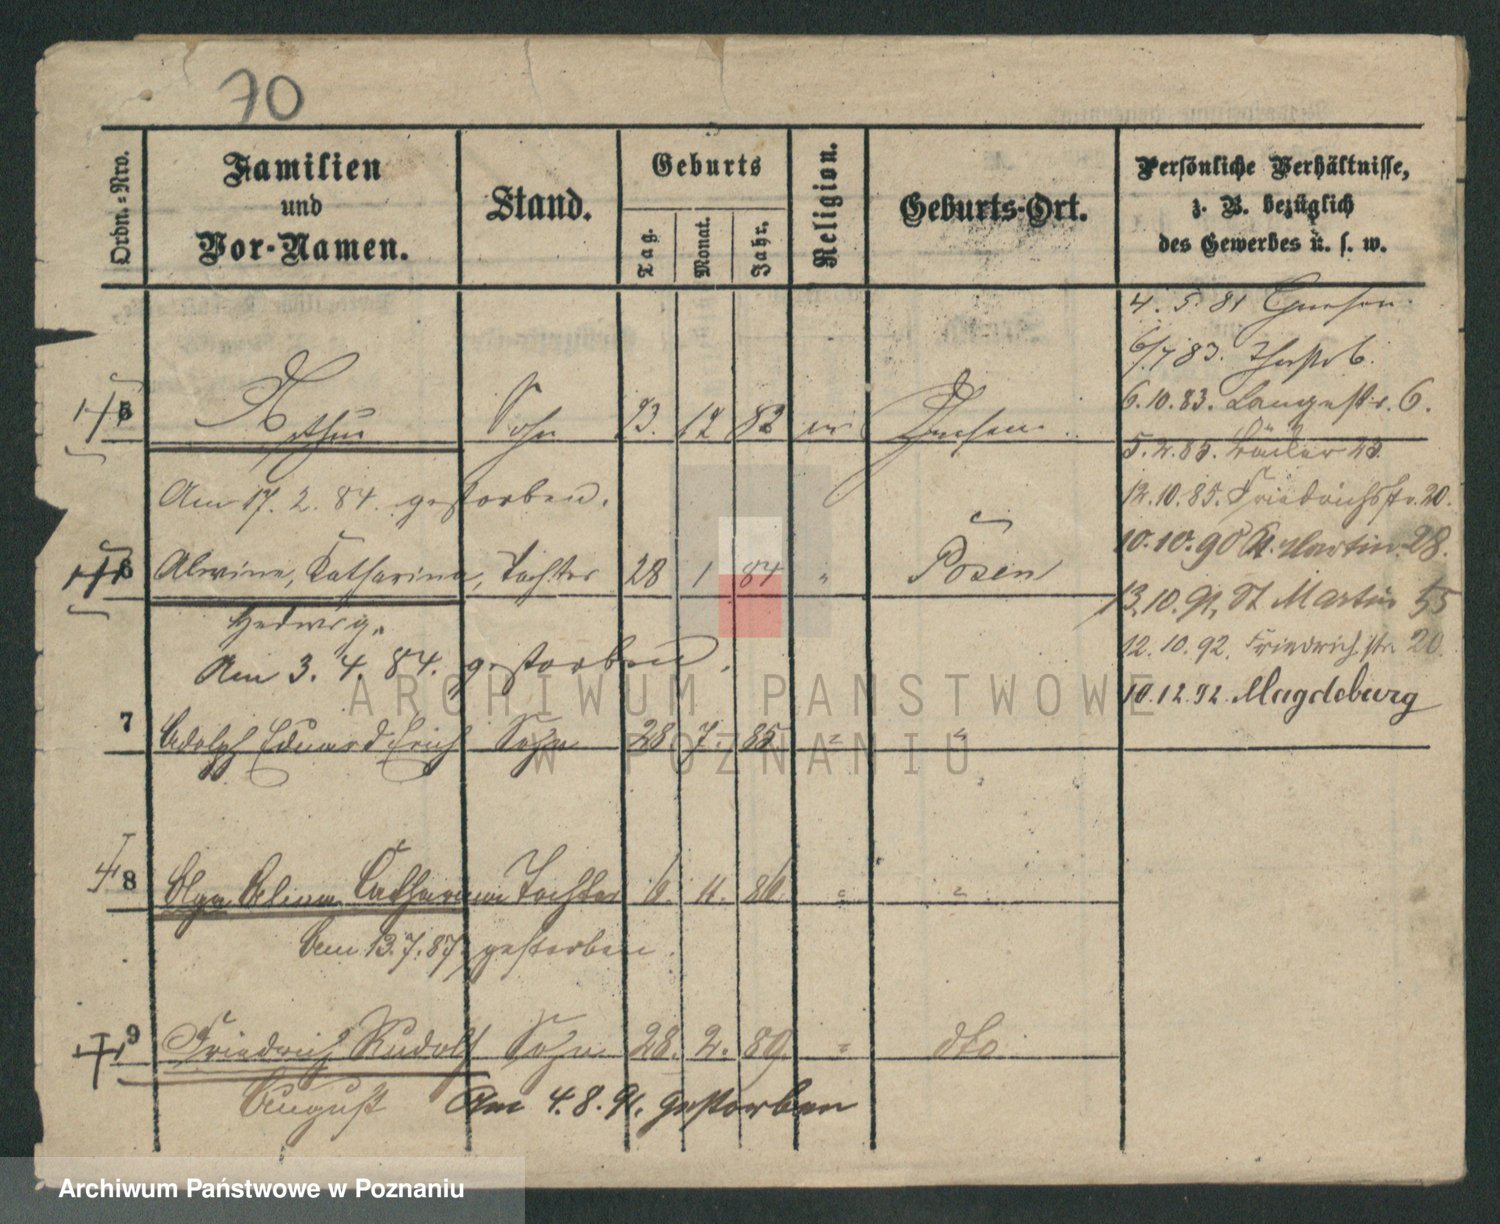 70
Ordn.-Nro.
Familien
und
Vor-Namen.
Stand.
Geburts
Tag.
Monat.
Jahr.
Religion.
Geburts-Ort.
Persönliche Verhältnisse,
z. B. bezüglich
des Gewerbes u. s. w.
4. 5. 81 Gnesen.
6/7 83.
6. 10. 83. Langestr. 6.
5 Arthur Sohn 23. 12 82 ev Gnesen.
5. 2. 85. 23.
Am 17. 2. 84. gestorben.
12. 10. 85. Friedrichstr. 20.
10. 10. 90 St. Martin 28.
6 Alwine, Katharina, Tochter 28 1 84 " Posen
13. 10. 91, St Martin 55
Hedwig.
12. 10. 92. Friedrichstr. 20.
Am 3. 4. 84. gestorben.
10. 12. 92. Magdeburg
7 Adolph Eduard Erich Sohn 28. 7. 85 " "
8 Olga Alina Catharina Tochter 6. 11. 86. " "
Am 13. 7. 87 gestorben.
9 Friedrich Rudolf Sohn 28. 2. 89. " dto
August Am 4. 8. 91. gestorben
ARCHIWUM PAŃSTWOWE
W POZNANIU
Archiwum Państwowe w Poznaniu